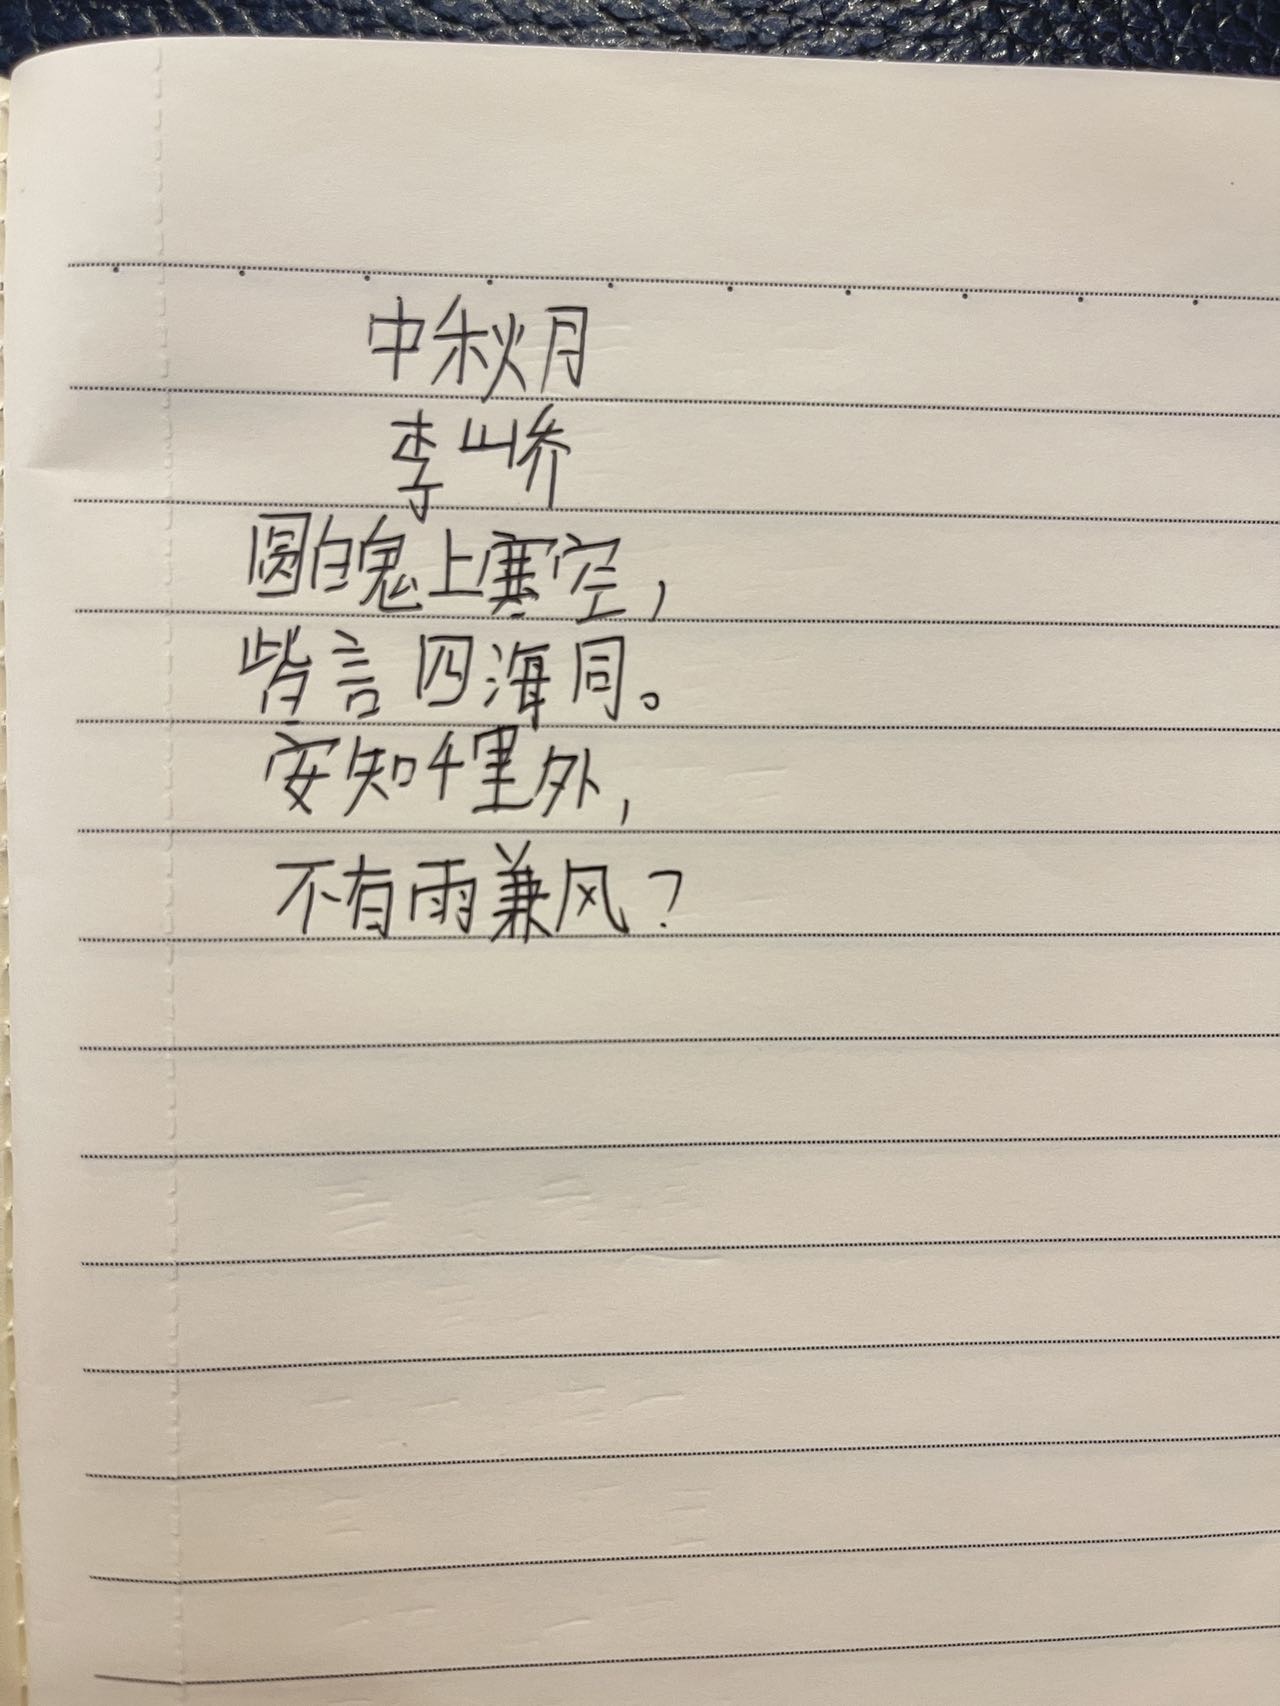 中秋月
李峤
圆魄上寒空，
皆言四海同。
安知千里外，
不有雨兼风？